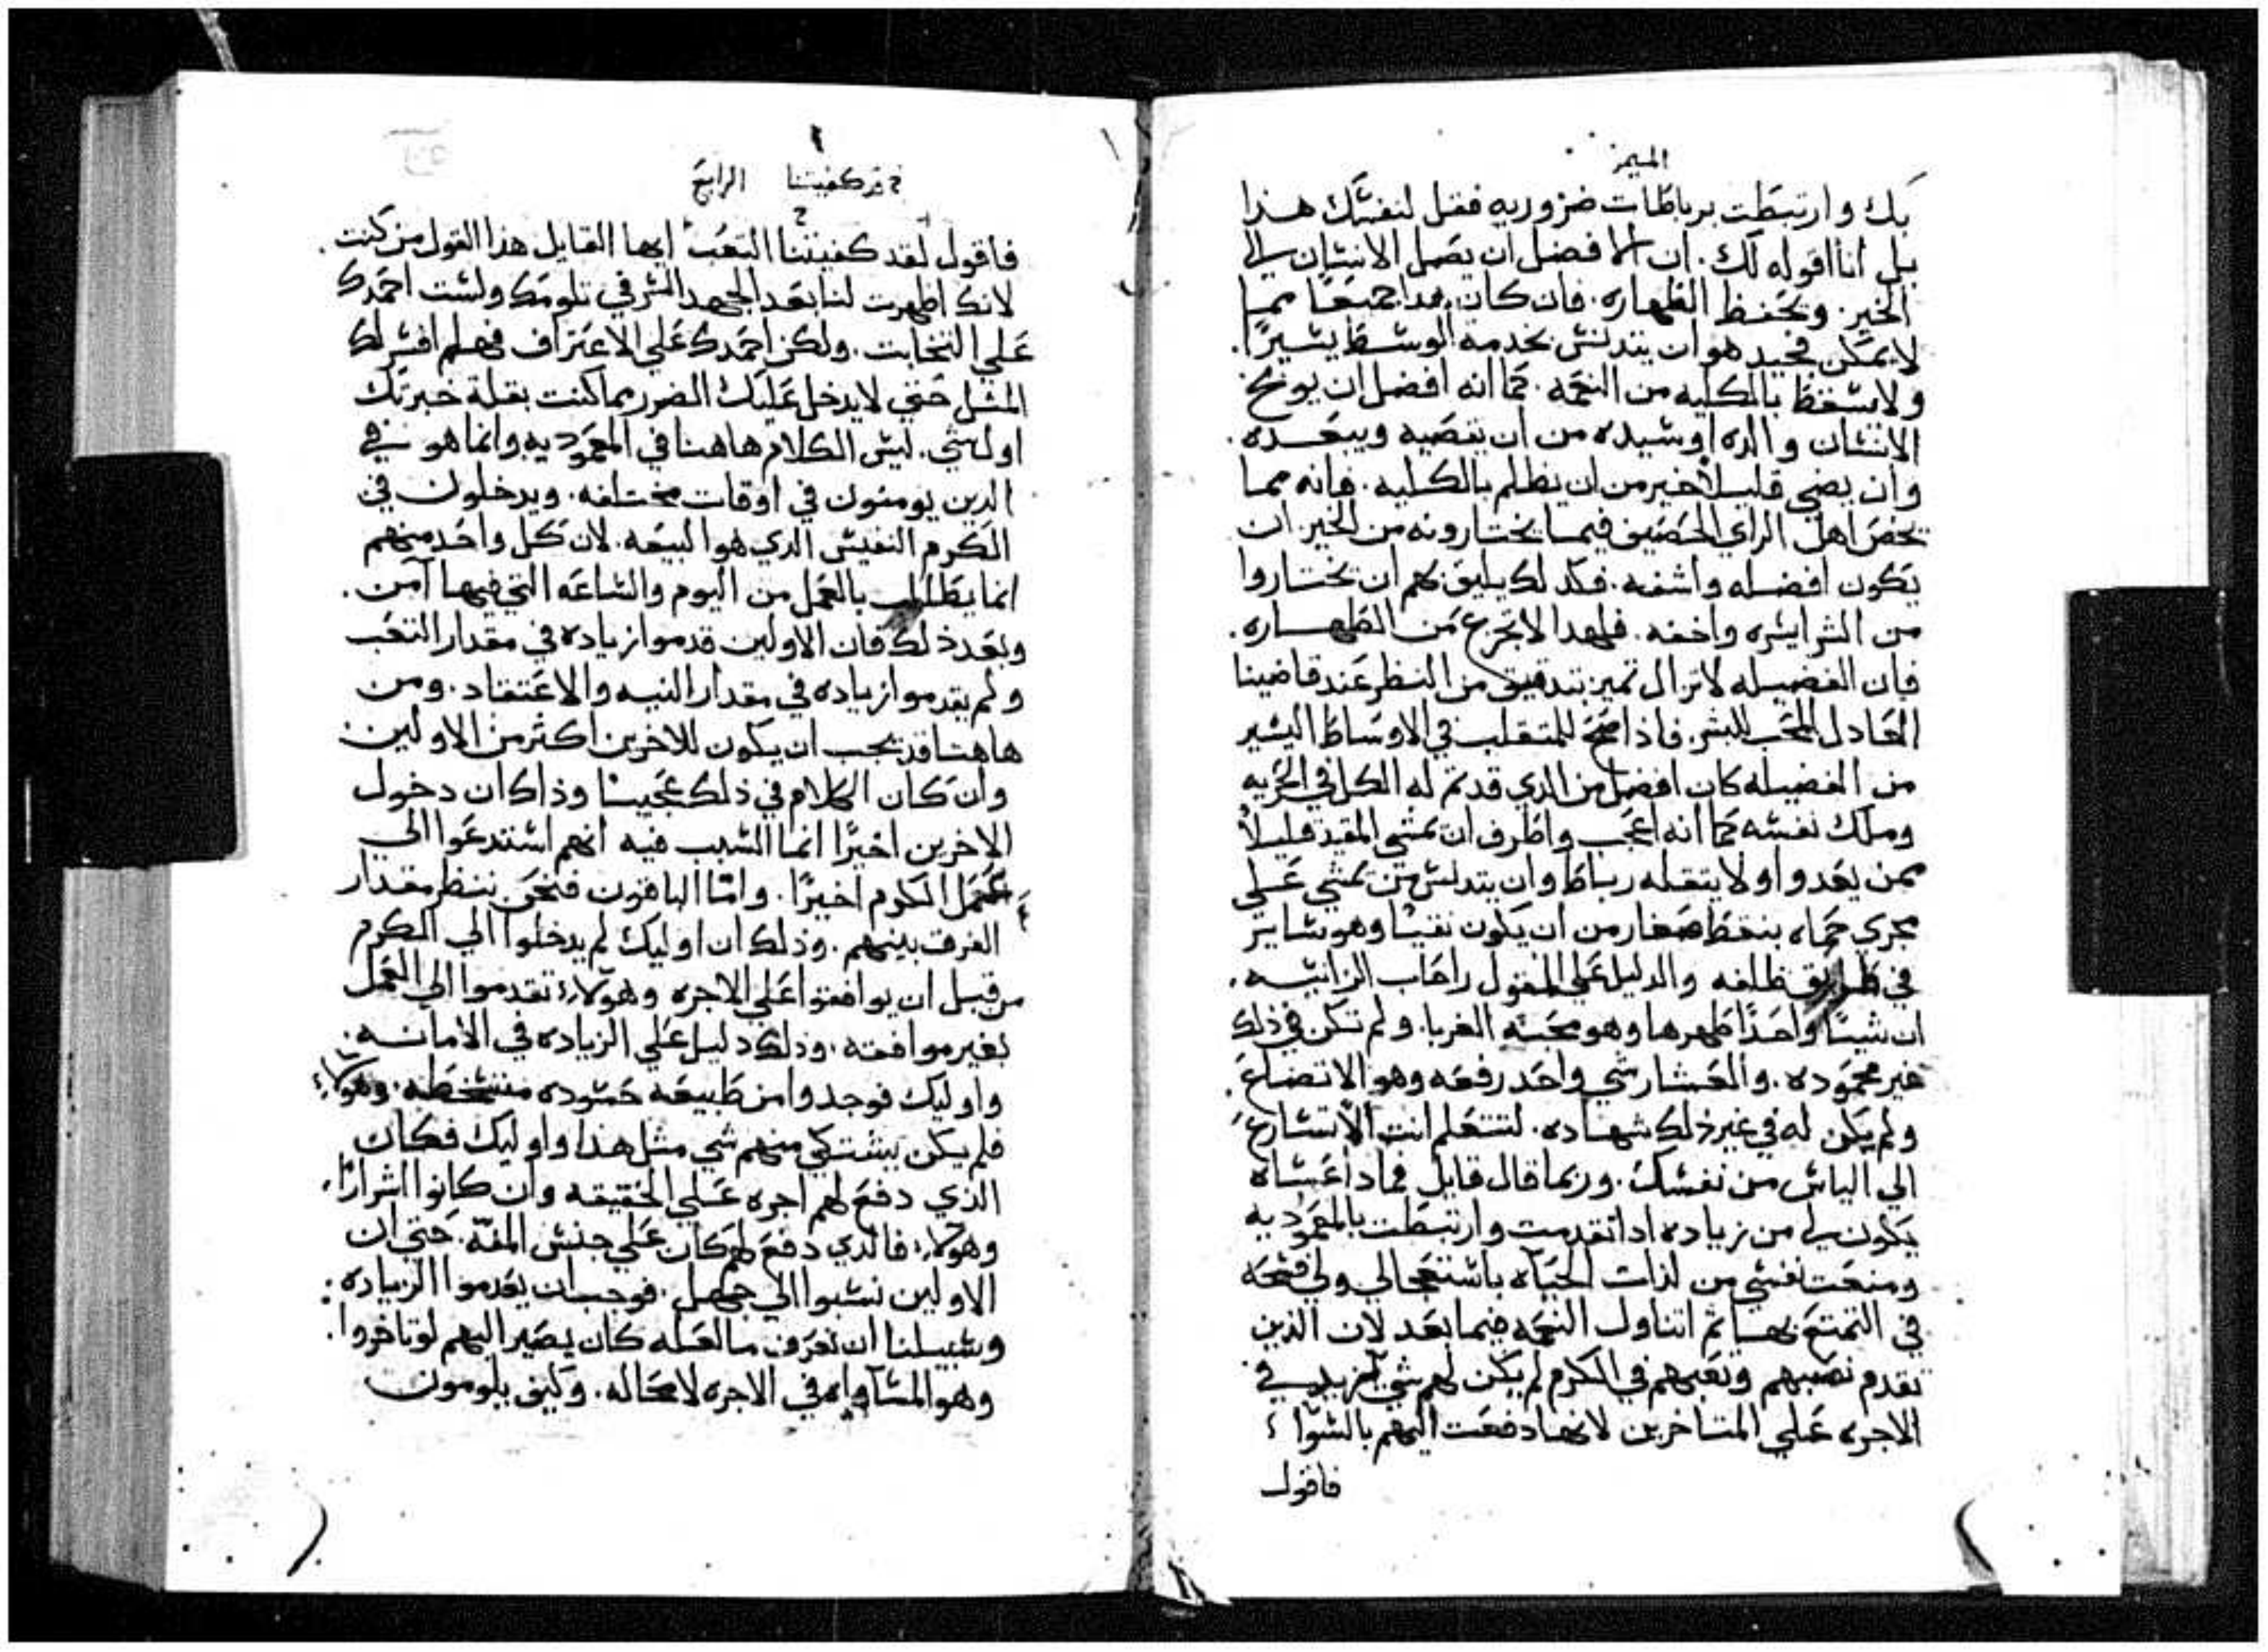 الميمر
بك وارتبطت برباطات ضروريه فقل لنفسك هذا
بل انا اقوله لك. ان الافضل ان يصل الانسان الي
الخير. ويحفظ الطهاره. فان كان هدا جميعا مما
لا يمكن فجيد هو ان يتدنس بخدمة الوسط يسيرًا.
ولا يسقط بالكليه من النعمه. كما انه افضل ان يوبخ
الانسان والده او سيده من ان يقصيه ويبعده.
وان يضي قليلاً خير من ان يظلم بالكليه. فانه مما
يخص اهل الراي الحصيف فيما يختارونه من الخير ان
يكون افضله واشفه. فكدلك يليق بهم ان يختاروا
من الشر ايسره واخفه. فلهدا لا تجزع من الطهاره.
فان الفضيله لا تزال تميز بتدقيق من النظر عند قاضينا
العادل المحب للبشر. فاذا صح للمتقلب في الاوساط اليسير
من الفضيله كان افضل من الدي قد تم له الكل في الحريه
وملك نفسه كما انه اعجب واظرف ان يمشي المقيد قليلاً
ممن يعدوا ولا يثقله رباط وان يتدنس من يمشي علي
مجري حماه بنقط صغار من ان يكون نقيا وهو ساير
في طريق نظفه والدليل علي المقول راحاب الزانيه.
ان شيا واحدًا طهرها وهو محبة الغربا. ولم تكن في ذلك
غير محموده. والعشار شي واحد رفعه وهو الاتضاع.
ولم يكن له في غير ذلك شهاده. لتتعلم انت الا تسارع
الي الياس من نفسك. وربما قال قايل فماذا عساه
يكون لي من زياده ادا تقدمت وارتبطت بالمعموديه
ومنعت نفسي من لذات الحياه باستعجالي ولي فسحه
في التمتع بها ثم اتناول النعمه فيما بعد لان الذين
تقدم نصبهم وتعبهم في الكرم لم يكن لهم شي مزيد في
الاجره علي المتاخرين لانها دفعت اليهم بالسوا
فاقول
قد كفيتنا الرابع
فاقول لقد كفيتنا التعب ايها القايل هذا القول من كنت.
لانك اظهرت لنا بعد الجهد السر في تلومك ولست احمدك
علي التخابث. ولكن احمدك علي الاعتراف فهلم افسر لك
المثل حتي لا يدخل عليك الضرر بما كنت بقلة خبرتك
اولهي. ليس الكلام هاهنا في المعموديه وانما هو في
الدين يومنون في اوقات مختلفه. ويدخلون في
الكرم النفيس الدي هو البيعه. لان كل واحد منهم
انما يطالب بالعمل من اليوم والساعه التي فيها آمن.
وبعد ذلك فان الاولين قدموا زياده في مقدار التعب
ولم يقدموا زياده في مقدار النيه والاعتقاد. ومن
هاهنا قد يجب ان يكون للاخرين اكثر من الاولين.
وان كان الكلام في ذلك عجيبًا وذاك ان دخول
الاخرين اخيرًا انما السبب فيه انهم استدعوا الي
عمل الكرم اخيرًا. وامّا الباقون فنحن ننظر مقدار
الفرق بينهم. وذلك ان اوليك لم يدخلوا الي الكرم
من قبل ان يوافقوا علي الاجره وهولاء تقدموا الي العمل
بغير موافقه. وذلك دليل علي الزياده في الامانه.
واوليك فوجدوا من طبيعه حسوده متسخطه. وهولاء
فلم يكن يشتكي منهم شي مثل هذا واوليك فكان
الذي دفع لهم اجره علي الحقيقه وان كانوا اشرارًا.
وهولاء فالدي دفع لهم كان علي جنس المنّه. حتي ان
الاولين نسبوا الي جهل. فوجب ان يعدموا الزياده.
وسبيلنا ان نعرف ما لعله كان يصير اليهم لو تاخروا.
وهو المساواه في الاجره لا محاله. وكيف يلومون